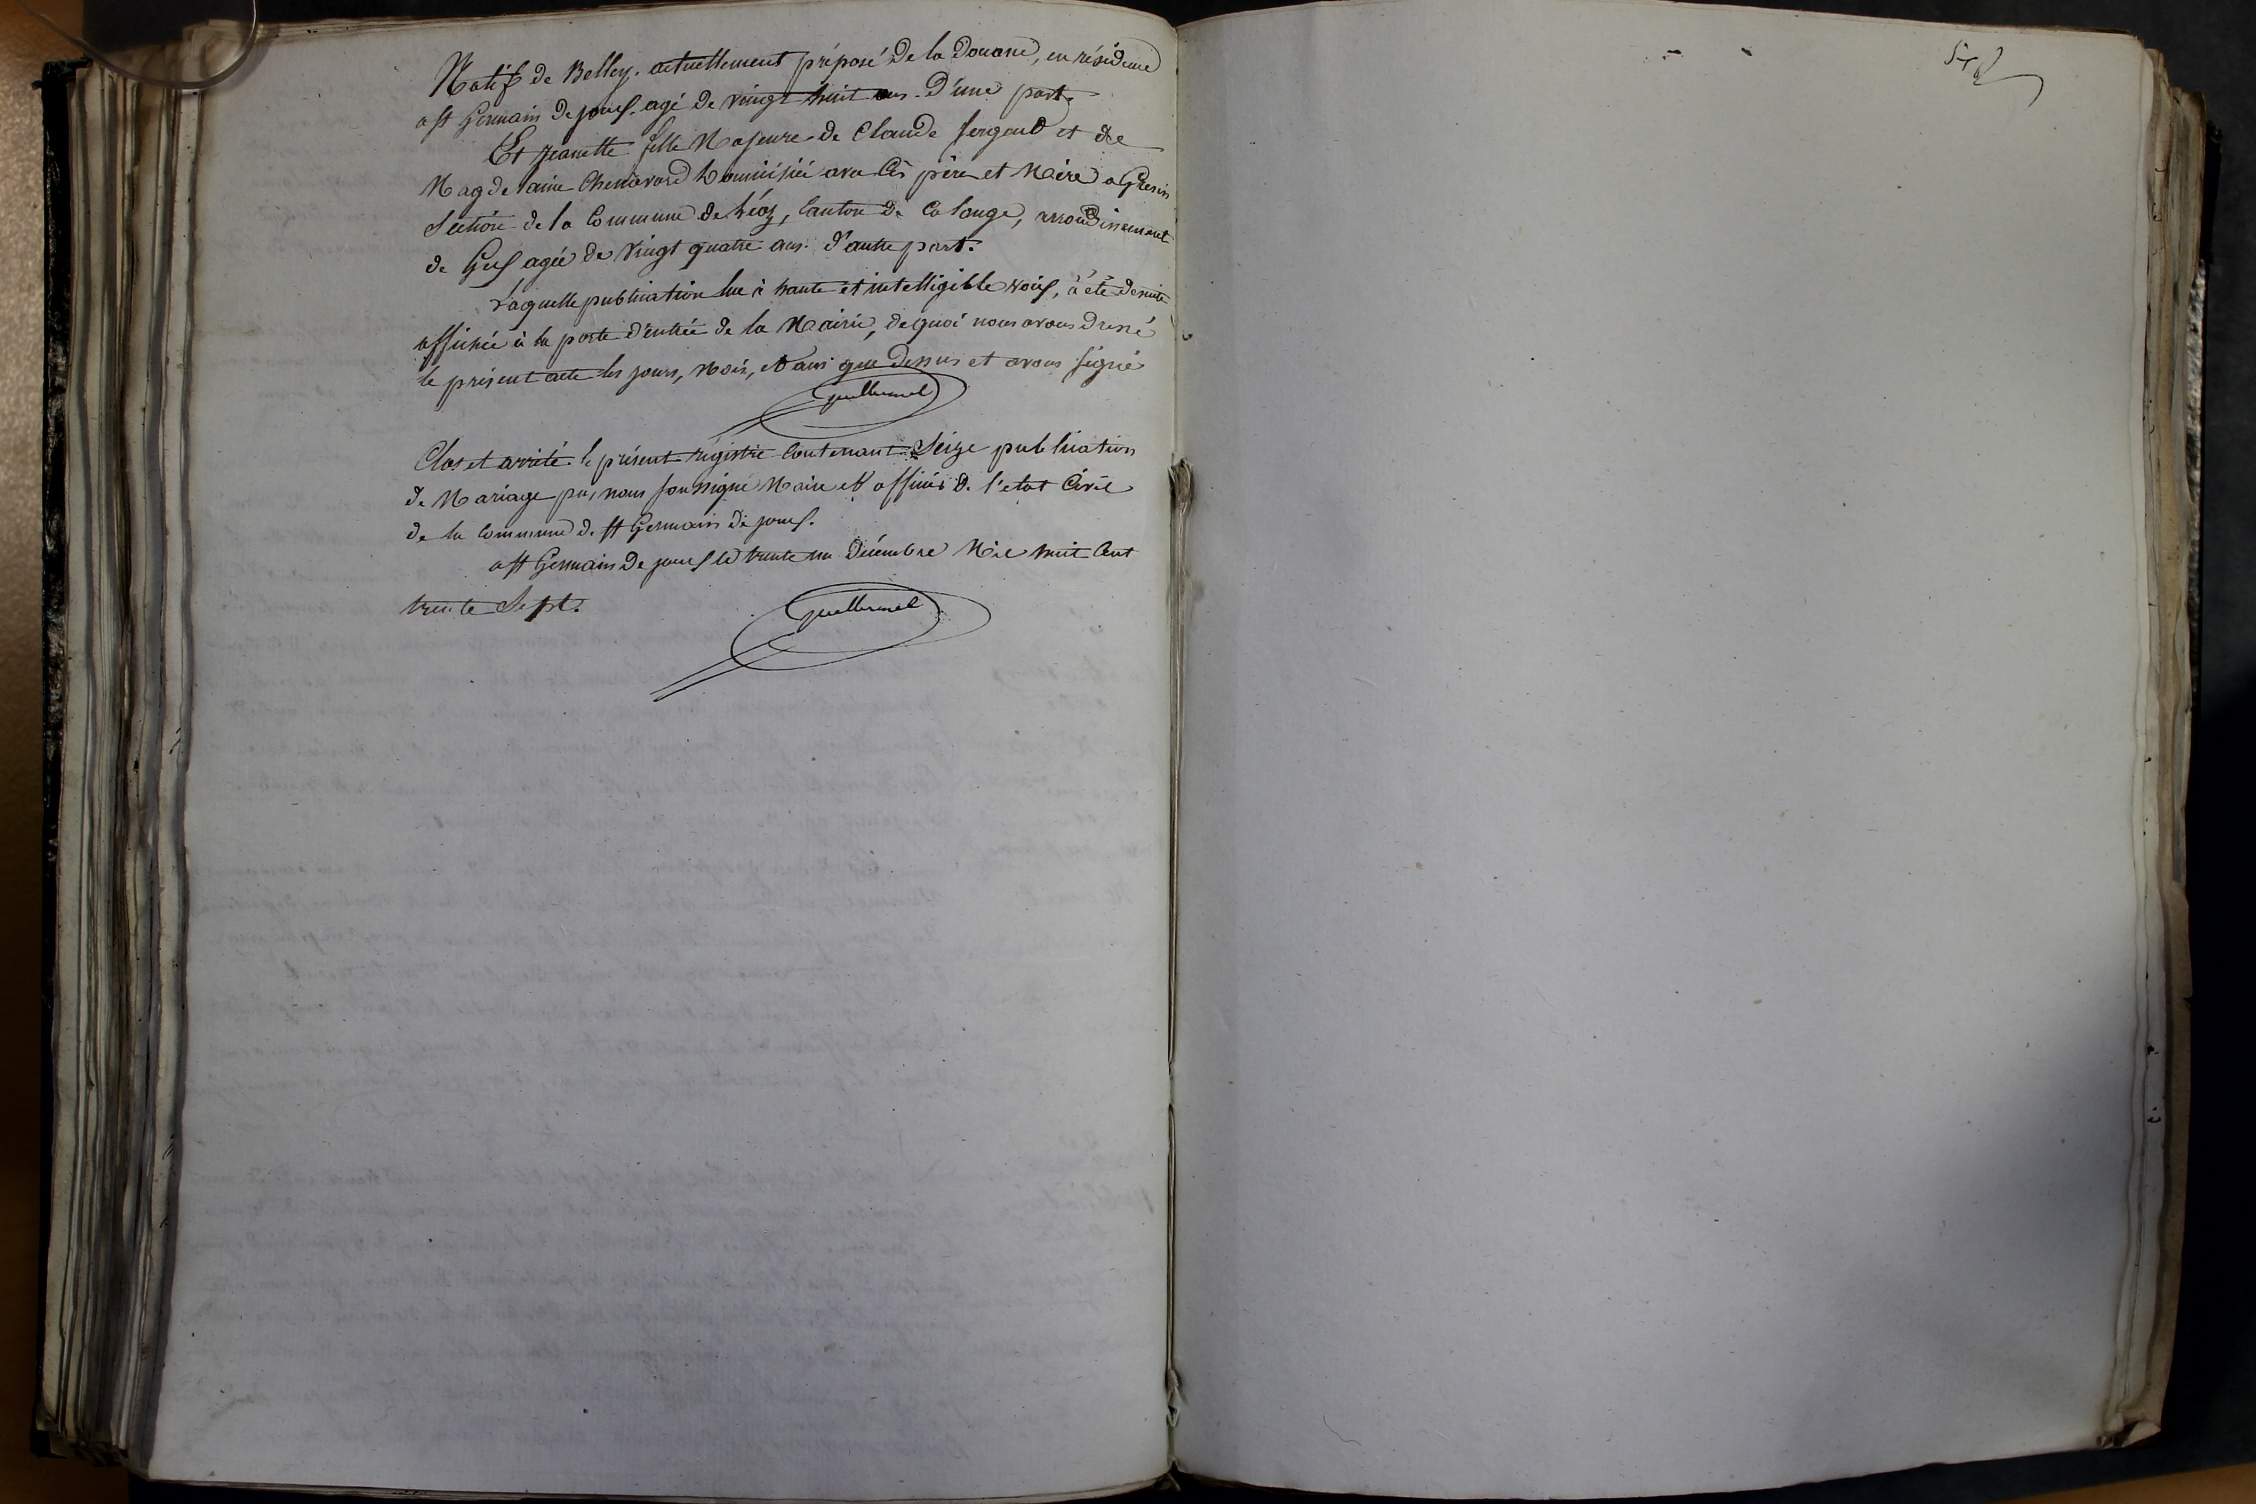 Natif de Belley. actuellement préposé de la Douane, en résidence
a st Germain de joux. agé de vingt huit ans. D'une part.
Et jeanette fille Majeure de Claude Sergent et de
Magdelaine Chenavard Domiciliée avec ses père et Mère a Gresin
Section de la Commune de Léaz, Canton de Colonge, arrondissement
de Gex agée de vingt quatre ans. d'autre part.
Laquelle publication lue à haute et intelligible voix, à été desuite
affichée à la porte d'entrée de la Mairie, de quoi nous avons dressé
le présent acte les jours, Mois, et ans que dessus et avons signé
Guillermet
Clos et arrêté. le présent régistre Contenant Seize publication
de Mariage par nous soussigné Maire et officier de l'etat Civil
de la Commune de st Germain de joux.
a st Germain de joux le trente un Décembre Mil huit Cent
trente Sept.
Guillermet